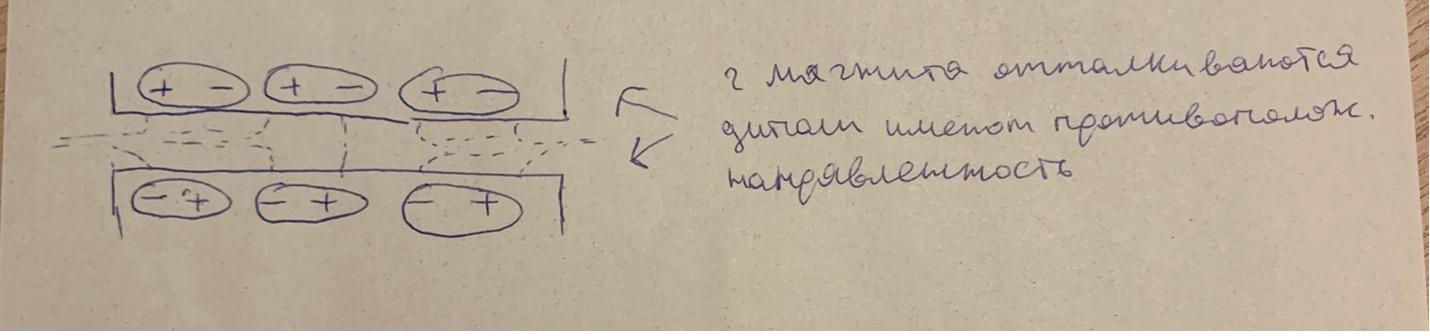 + - + - + -
2 магнита отталкиваются
диполи имеют противополож.
направленность
- + - + - +